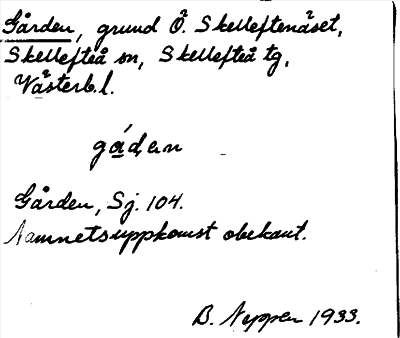 Gården, grund Ö. Skelleftenäset,
Skellefteå sn, Skellefteå tg,
Västerb.l.
gáden
Gården, Sj. 104.
Namnetsuppkomst obekant.
B. 1933.